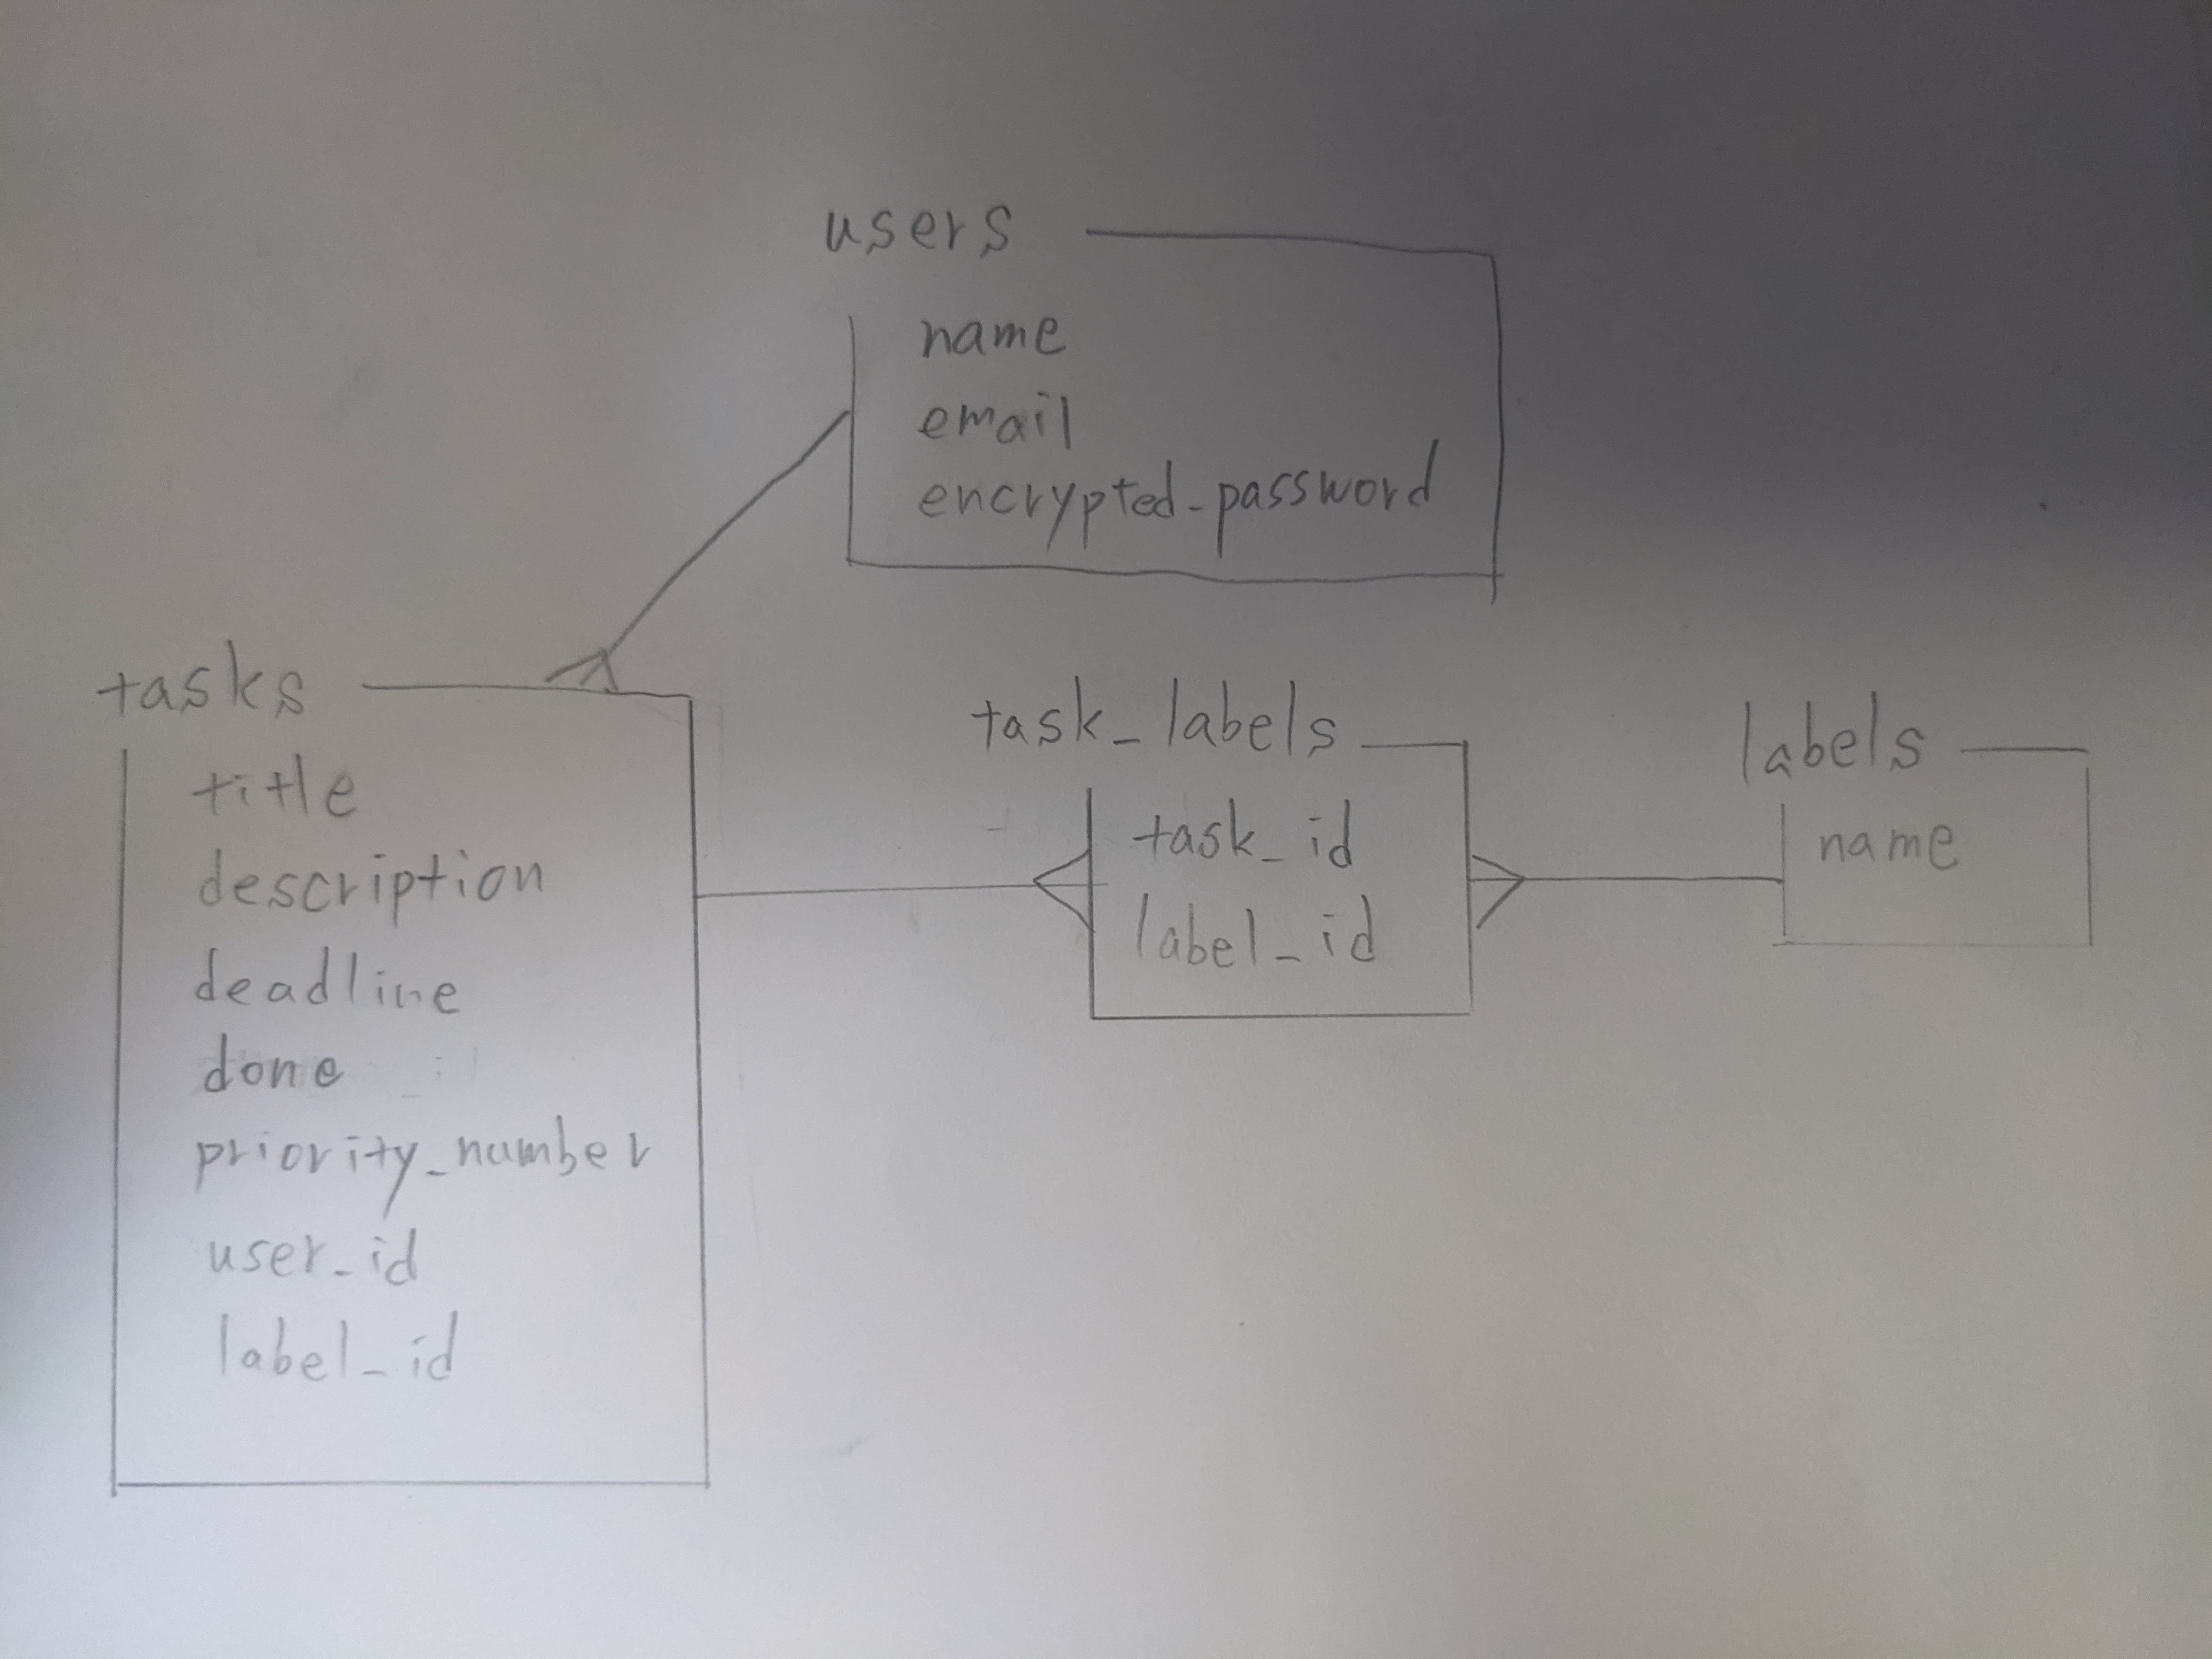 users
name
email
encrypted_password
tasks
title
description
deadline
done
priority_number
user_id
label_id
task_labels
task_id
label_id
labels
name